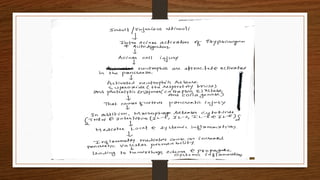 Insult / Injurious stimuli
Intra acinar activation of Trypsinogen
& Autodigestion
Acinar cell injury
neutrophils are attracted & activated
in the pancreas
Activated neutrophils release
superoxide (the respiratory burst)
and proteolytic enzymes (cathepsin B, elastase
and collagenase)
That cause further pancreatic injury
In addition, Macrophage release cytokines
Mediate Local & systemic inflammatory
Inflammatory mediators cause an increased
pancreatic vascular permeability
leading to hemorrhage edema & propagate
systemic inflammatory